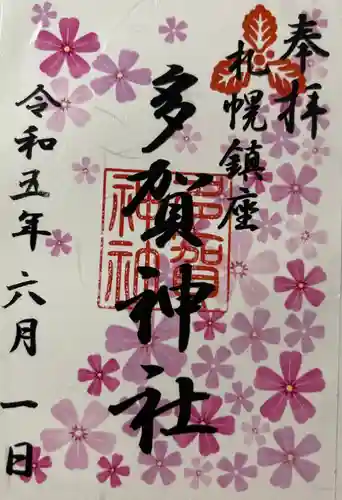 奉拝
札幌鎮座
多賀神社
多賀神社
令和五年 六月 一日